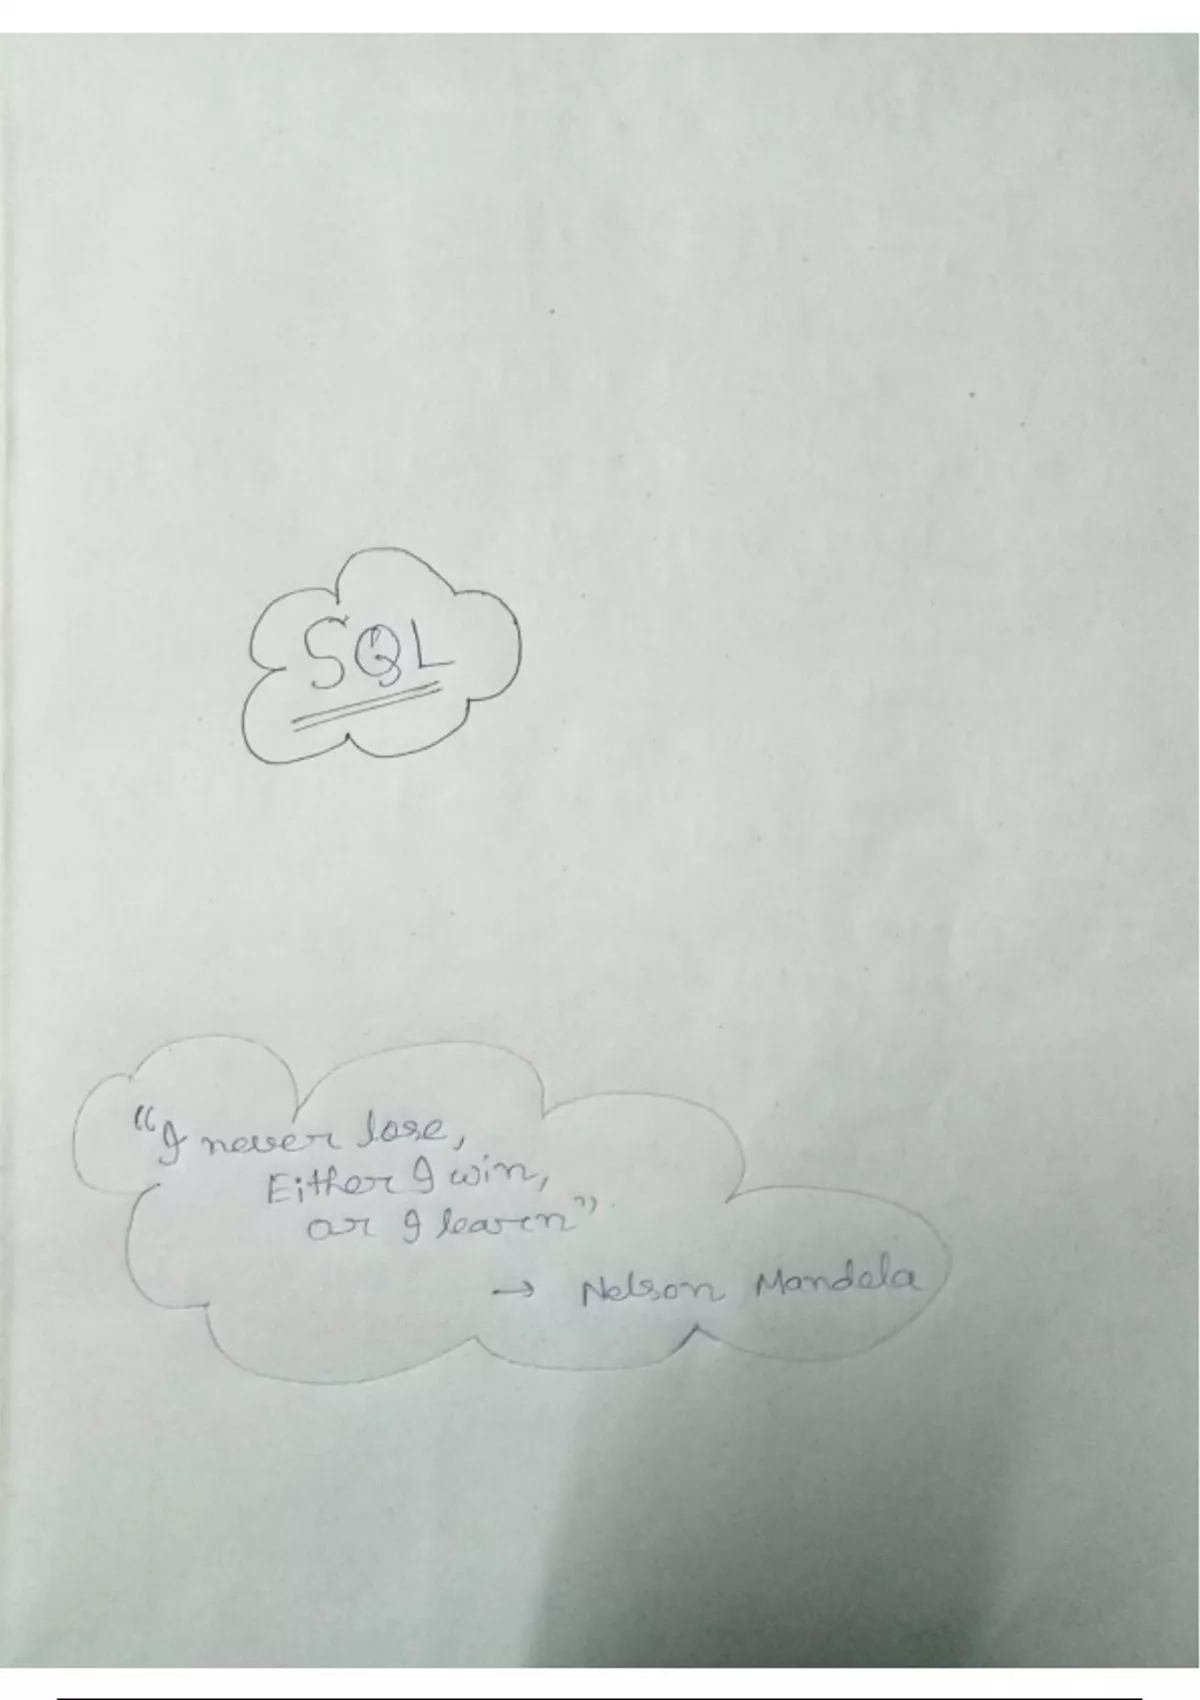 SQL
"I never lose,
Either I win,
or I learn"
→ Nelson Mandela